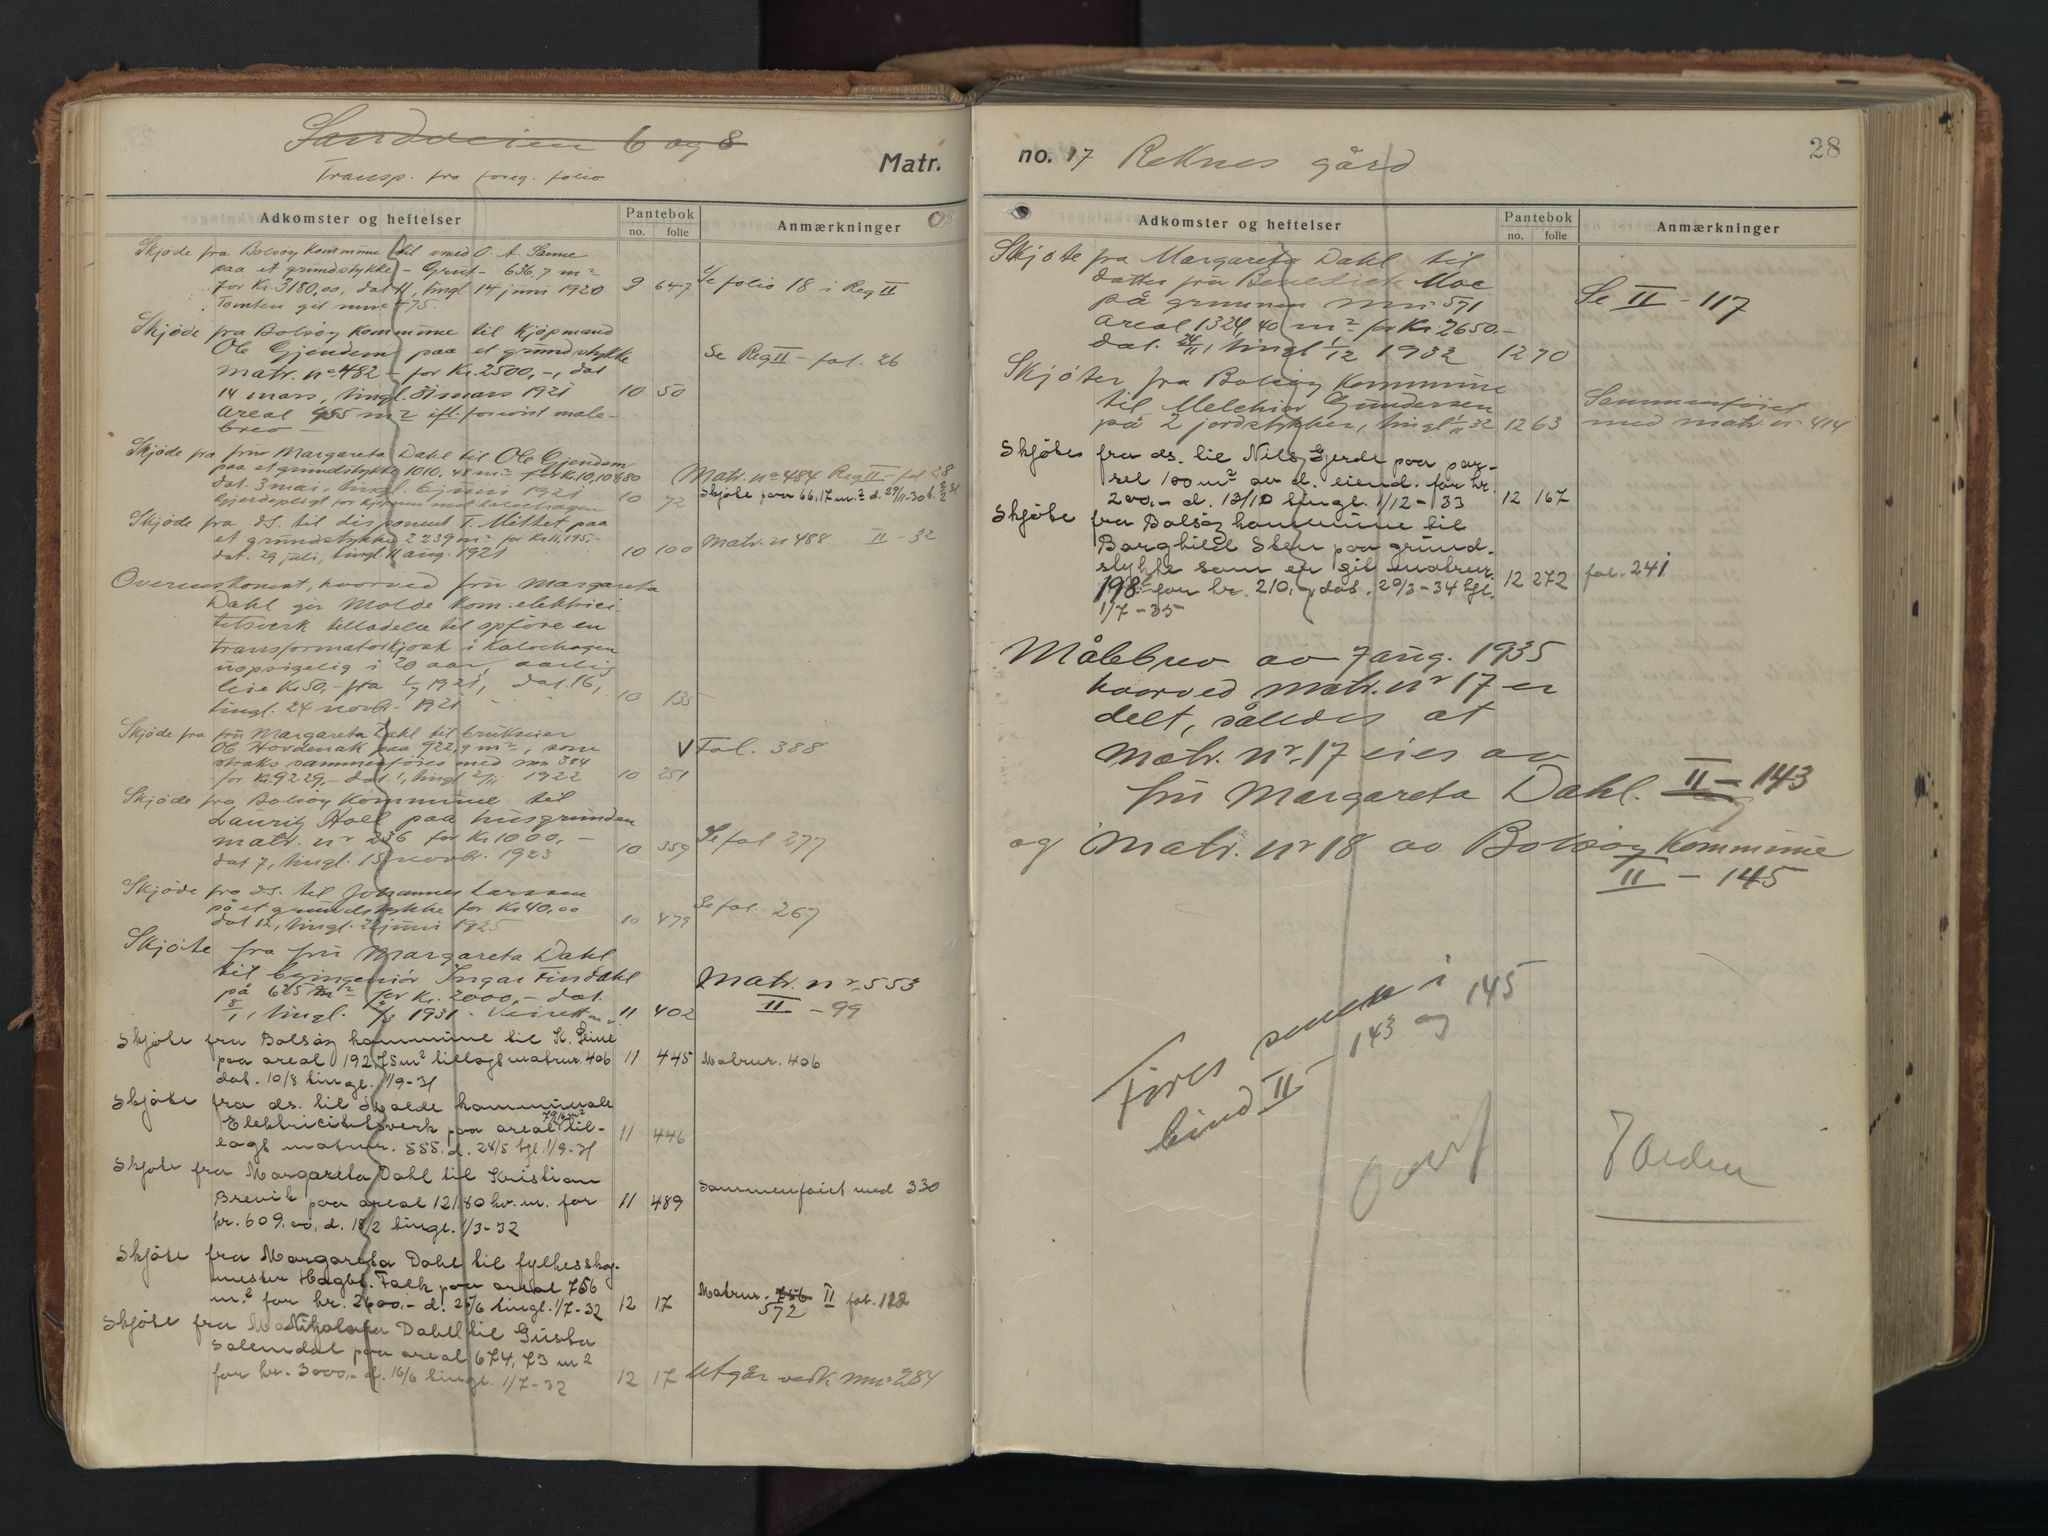 Sandveien 6 og 8
Transp. fra foreg. folio
Matr.
Adkomster og heftelser
Pantebok
no. folie
Anmærkninger
Skjøde fra Bolsøy Kommune til smed O. A. Sanne
paa et grundstykke - Grut - 636,7 m2
for Kr. 3180,00, dat. 11, tingl. 14 juni 1920 9 647 Se folio 18 i Reg II
Tomten git mnr 475
Skjøde fra Bolsøy Kommune til Kjøpmand
Ole Gjendem paa et grundstykke Se Reg II - fol. 26
matr. no 482 - for Kr. 2500,-, dat
14 mars, tingl. 31 mars 1921 10 50
areal 455 m2 efter forevist maale-
brev
Skjøde fra fru Margareta Dahl til Ole Gjendem
paa et grundstykke 1010,48 m2 for Kr. 10,104,80 Matr. no 484 Reg II - fol 28
dat. 3 mai, tingl. 6 juni 1921 10 72 Skjøte paa 66,17 m.2 d. 29/11-30
Gjerdepligt for kjøperen mot Kalvehagen
Skjøde fra ds. til disponent T. Mittet paa
et grundstykke 2239 m2 for Kr. 11,195.- Matr. nr 488 II - 32
dat. 29 juli, tingl. 11 aug. 1921 10 100
Overenskomst, hvorved fru Margareta
Dahl gir Molde kom. elektrici-
tetsverk tilladelse til opføre en
transformatorkjosk i Kalvehagen
uopsigelig i 20 aar, aarlig
leie Kr. 50,- fra 1/7 1921, dat. 16,
tingl. 24 novbr. 1921 10 135
Skjøde fra fru Margareta Dahl til brukseier
Ole Hovdenak paa 922,9 m2, som V Fol. 388
straks sammenføies med mnr 384
for Kr. 9229,- dat. 1, tingl. 2/11 1922 10 251
Skjøde fra Bolsøy Kommune til
Lauritz Holl paa husgrunden
matr. nr 236 for Kr. 1000,- Se fol 277
dat 7, tingl. 15 novbr. 1923 10 359
Skjøde fra ds. til Johannes Larssen
på et grundstykke for Kr. 40,00 Se fol. 267
dat 12, tingl. 22 juni 1925 10 479
Skjøte fra fru Margareta Dahl
til byingeniør Ingar Findahl Matr. nr. 553
på 625 m2 for Kr. 2000,- dat. II - 99
8/1, tingl. 2/3 1931. Veirett m.v. 11 402
Skjøte fra Bolsøy kommune til K. Seine
paa areal 192,75 m2 tillagt matrnr. 406 11 445 Matrnr. 406
dat. 10/8 tingl. 1/9-31
Skjøte fra ds. til Molde kommunale
Elektricitetsverk paa areal 79,16 m2 til-
lagt matrnr. 555. d. 28/5 tgl. 1/9-31 11 446
Skjøte fra Margareta Dahl til Kristian
Brevik paa areal 121,80 kv. m. for 11 489 Sammenføiet med 330
kr. 609.00, d. 18/2 tingl. 1/3-32
Skjøte fra Margareta Dahl til fylkesskog-
mester Hagb. Falk paa areal 756
m.2 for kr. 2600.- d. 25/6 tingl. 1/7-32 12 17 Matrnr. 756 II fol. 112
572
Skjøte fra Nikolava Dahl til Gusta
Solemdal paa areal 674,73 m2
for kr. 3000,- d. 16/6 tingl. 1/7-32 12 17 Utgår vedk mnr 284
no. 17 Reknes gård
28
Adkomster og heftelser
Pantebok
no. folie
Anmærkninger
Skjøte fra Margareta Dahl til
datter fru Benedicte Moe
på grunnen mnr 571 Se II - 117
areal 1324,40 m2 for Kr 2650.-
dat. 24/11, tingl 1/12 1932 12 70
Skjøter fra Bolsøy Kommune
til Melchior Gundersen Sammenføiet
på 2 jordstykker, tingl 1/11 32 12 63 med matr. nr 414
Skjøte fra ds. til Nils Gjerde paa par-
sel 100 m2 av d. eiend. for kr.
200,- d. 12/10 tingl. 1/12-33 12 167
Skjøte fra Bolsøy kommune til
Borghild Sten paa grund-
stykke som er git matrnr.
198 for kr. 210,-, dat. 29/3-34 tgl. 12 272 fol. 241
1/7-35
Målebrev av 7 aug. 1935
hvorved matr. nr 17 er
delt, således at
Matr. nr. 17 eies av
fru Margareta Dahl. II - 143
og
og Matr. nr 18 av Bolsøy Kommune
II - 145
Føres senere i
bind II - 143 og 145